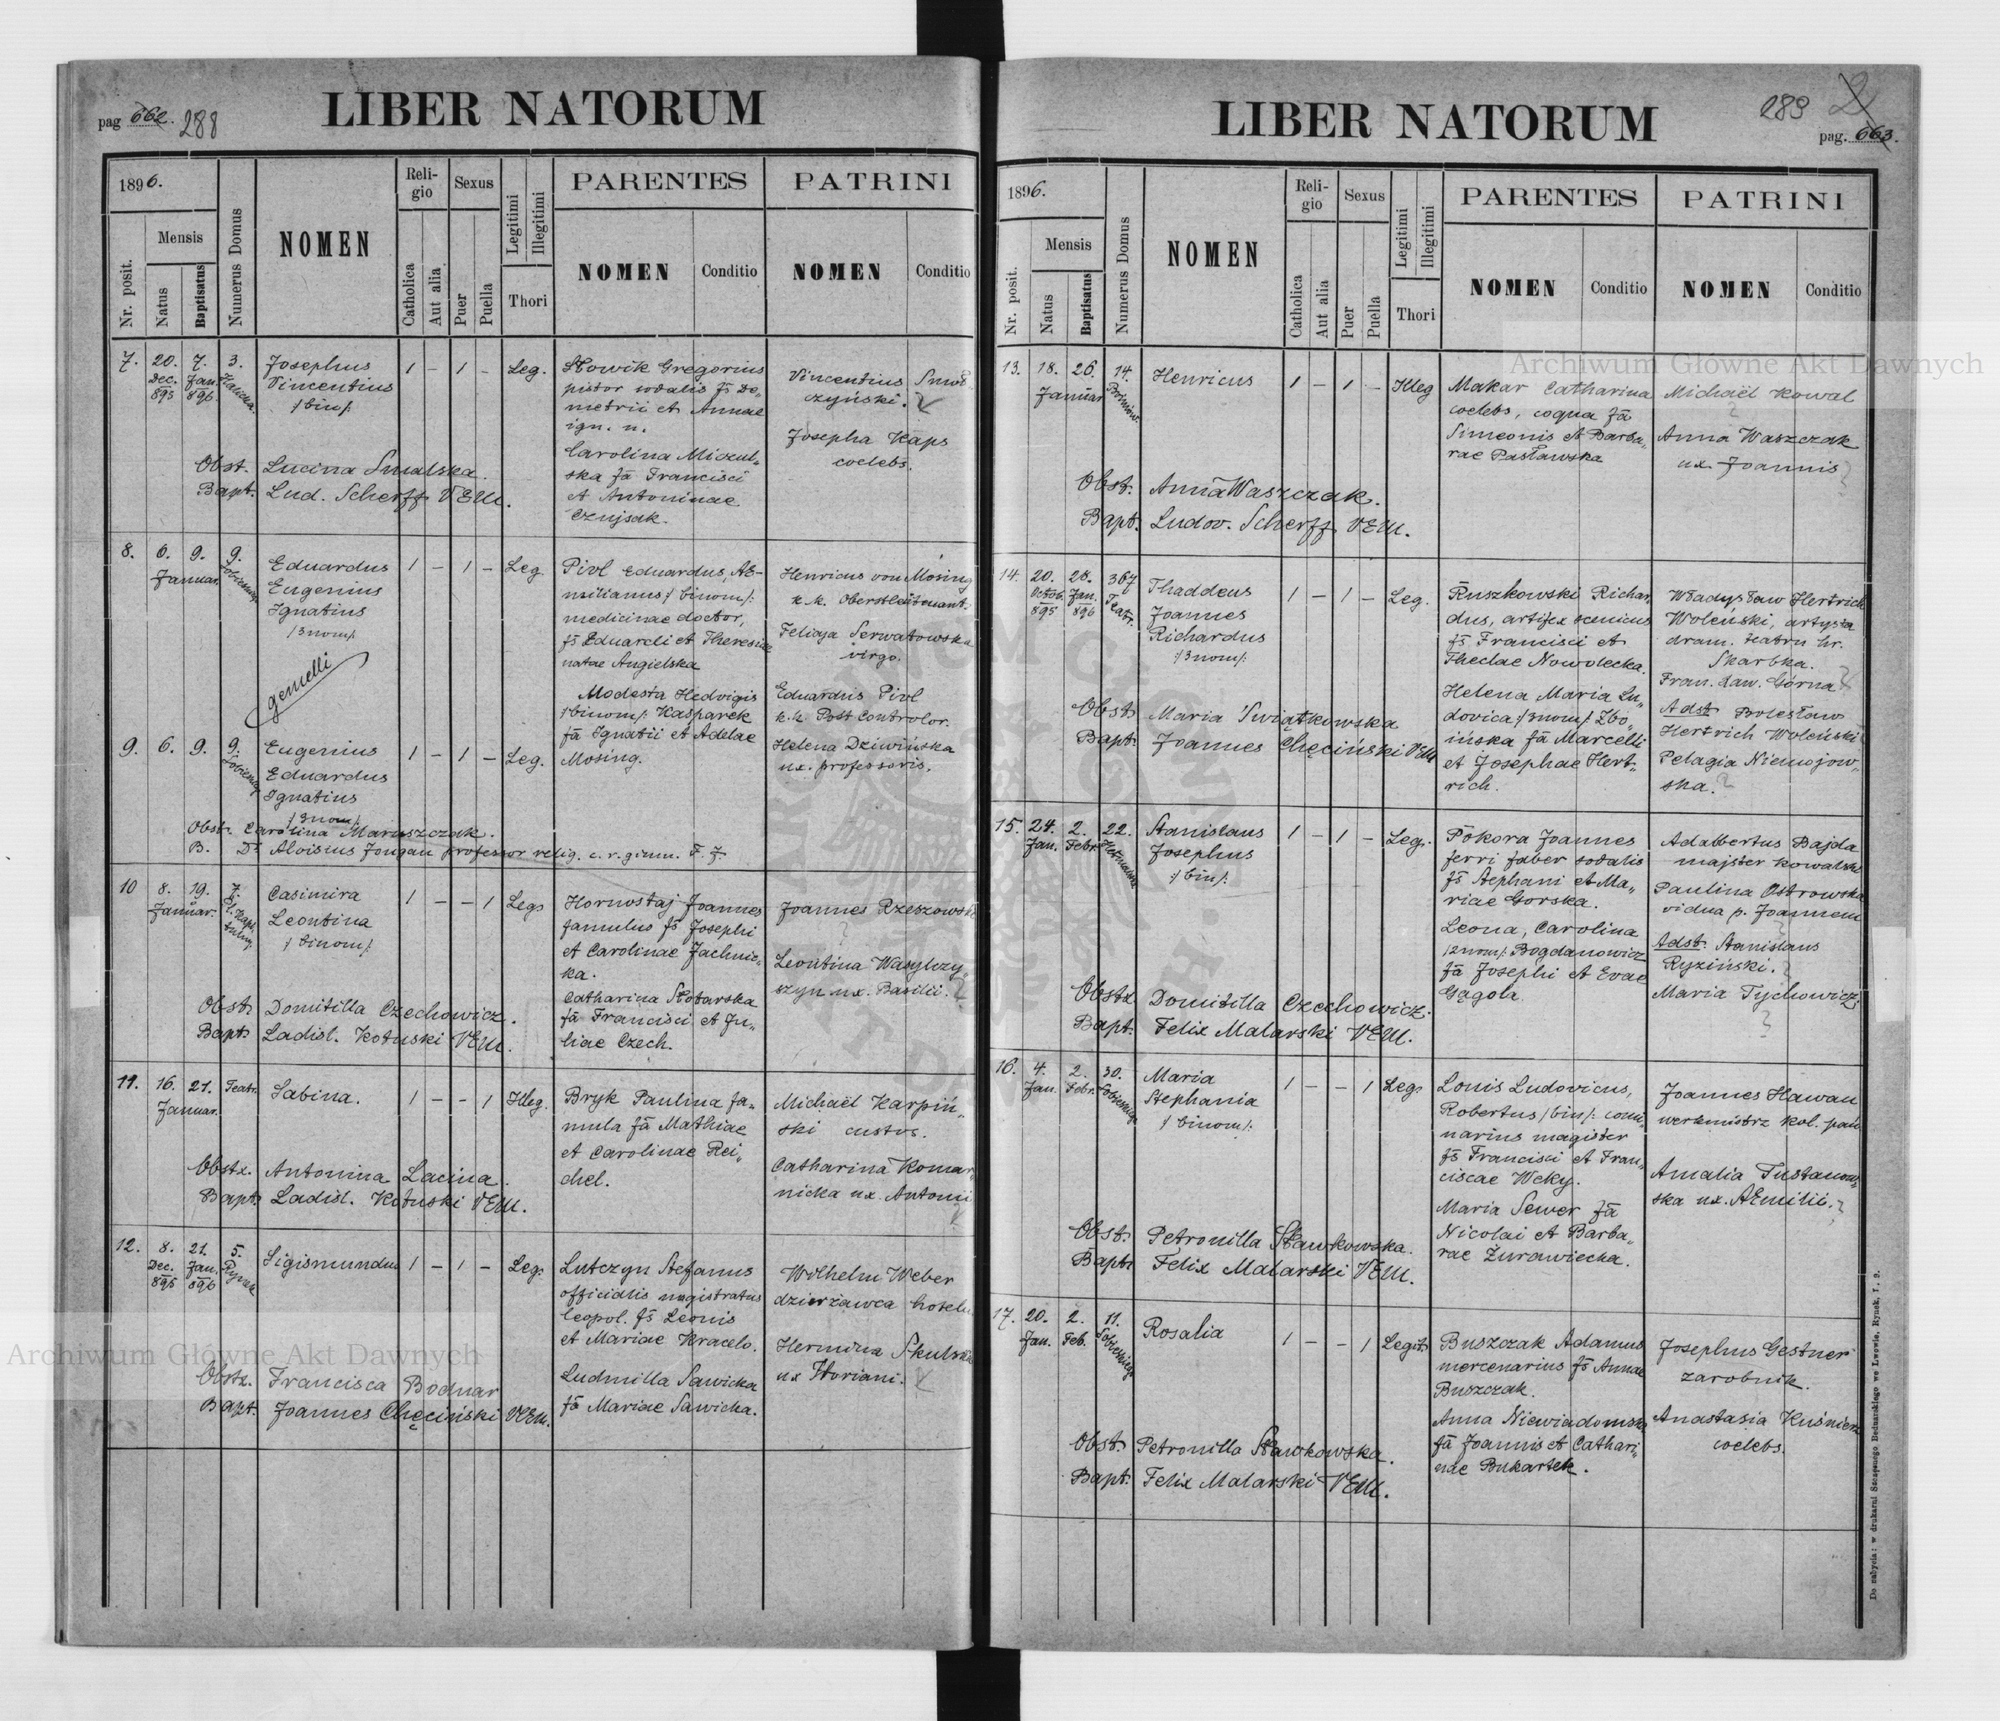 pag 662. 288
LIBER NATORUM
1896.
Religio
Sexus
Legitimi
Illegitimi
PARENTES
PATRINI
Mensis
Numerus Domus
NOMEN
Nr. posit.
Natus
Baptisatus
Catholica
Aut alia
Puer
Puella
Thori
NOMEN
Conditio
NOMEN
Conditio
7. 20. 7. 3. Josephus 1 – 1 – Leg. Słowik Gregorius
Dec. Jan. Halicka. Vincentius pistor sodalis fs De„
895 896 /:bin/: metrii et Annae
ign. n.
Carolina Miczul„
ska fa Francisci
et Antoninae
Czujsak.
Vincentius Smol
czyński.
Josepha Kaps
coelebs.
Obst. Lucina Smalska.
Bapt. Lud. Scherff VEM.
8. 6. 9. 9. Eduardus 1 – 1 – Leg. Pivl Eduardus, AE–
Januar. Sobieskiego Eugenius milianus /:binom/:
Ignatius medicinae doctor,
/3nom/: fs Eduardi et Theresiae
natae Angielska
gemelli
Modesta Hedvigis
/:binom/: Kasparek
fa Ignatii et Adelae
Mosing.
Henricus von Mosing
k.k. Oberstleutenant.
Felicya Serwatowska
virgo.
Eduardus Pivl
k.k. Post Controlor.
Helena Dziwińska
ux. professoris.
9. 6. 9. 9. Eugenius 1 – 1 – Leg.
Sobieskiego Eduardus
Ignatius
/3nom/
Obst. Carolina Maruszczak.
B. Dr Aloisius Jougan professor relig. c. r. gimn. F. J.
10 8. 19. 7. Casimira 1 – – 1 Leg. Hornostaj Joannes
Januar. Leontina famulus fs Josephi
/binom/: et Carolinae Jachnic„
ka.
Catharina Stolarska
fa Francisci et Ju„
liae Czech.
Joannes Rzeszowsk
?
Leontina Wasylczy„
szyn ux. Basilii. ?
Obst. Domitilla Czechowicz.
Bapt. Ladisl. Kotuski VEM.
11. 16. 21. Teatr. Sabina. 1 – – 1 Illeg. Bryk Paulina fa„
Januar. mula fa Mathiae
et Carolinae Rei„
chel.
Michaël Karpiń„
ski custos.
Catharina Komar
nicka ux. Antonii
Obstx. Antonina Lacina.
Bapt. Ladisl. Kotuski VEM.
12. 8. 21. 5. Sigismundus 1 – 1 – Leg. Lutczyn Stefanus
Dec. Jan. Rynek officialis magistratus
895 896 leopol. fs Leonis
et Mariae Kracelo.
Ludmilla Sawicka
fa Mariae Sawicka.
Wilhelm Weber
dzierżawca hotelu
Hermina Skulska
ux Floriani.
Obstx. Francisca Bodnar
Bapt. Joannes Chęciński VEM.
Archiwum Główne Akt Dawnych
LIBER NATORUM
289
pag. 663.
1896.
Religio
Sexus
Legitimi
Illegitimi
PARENTES
PATRINI
Mensis
Numerus Domus
NOMEN
Nr. posit.
Natus
Baptisatus
Catholica
Aut alia
Puer
Puella
Thori
NOMEN
Conditio
NOMEN
Conditio
Archiwum Główne Akt Dawnych
13. 18. 26. 14. Henricus 1 – 1 – Illeg Makar Catharina
Januar. coelebs, coqua fa
Simeonis et Barba„
rae Pasławska
Michaël Kowal
?
Anna Waszczak
ux. Joannis ?
Obst. Anna Waszczak.
Bapt. Ludov. Scherff VEM.
14. 20. 28. 367 Thaddeus 1 – 1 – Leg. Ruszkowski Richar„
Octob. Jan. Teatr. Joannes dus, artifex scenicus
895 896 Richardus fs Francisci et
:/3nom/: Theclae Nowolecka.
Helena Maria Lu„
dovica :/3nom/: Zbo„
ińska fa Marcelli
et Josephae Hert„
rich.
Władysław Hertrich
Woleński, artysta
dram. teatru hr.
Skarbka.
Fran. Law. Górna ?
Adst. Bolesław
Hertrich Woleński
Pelagia Niemojow„
ska. ?
Obst. Maria Świątkowska
Bapt. Joannes Chęciński VEM
15. 24. 2. 22. Stanislaus 1 – 1 – Leg. Pokora Joannes
Jan. Febr. Hetmańska Josephus ferri faber sodalis
:/bin/: fs Stephani et Ma„
riae Gorska.
Leona, Carolina
/2nom/: Bogdanowicz
fa Josephi et Evae
Gągola
Adalbertus Bajda
majster kowalski
Paulina Ostrowska
vidua p. Joannem
Adst. Stanislaus
Ryziński. ?
Maria Tychowicz.
?
Obstx. Domitilla Czechowicz.
Bapt. Felix Malarski VEM.
16. 4. 2. 30. Maria 1 – – 1 Leg. Louis Ludovicus,
Jan. Febr. Sobieskiego Stephania Robertus /bin/: comi„
/binom/: narius magister
fs Francisci et Fran„
ciscae Weky.
Maria Sewer fa
Nicolai et Barba„
rae Żurawiecka.
Joannes Hawan
werkmistrz kol. pań
Amalia Tustanow„
ska ux. AEmilii. ?
Obst. Petronilla Sławkowska.
Bapt. Felix Malarski VEM.
17. 20. 2. 11. Rosalia 1 – – 1 Legit. Buszczak Adamus
Jan. Feb. Sobieskiego mercenarius fs Annae
Buszczak.
Anna Niewiadomska
fa Joannis et Cathari„
nae Bukartek.
Josephus Gestner
zarobnik.
Anastasia Kuśnierz
coelebs.
Obst. Petronilla Sławkowska.
Bapt. Felix Malarski VEM.
Do nabycia: w drukarni Szczęsnego Bednarskiego we Lwowie, Rynek, l. 9.